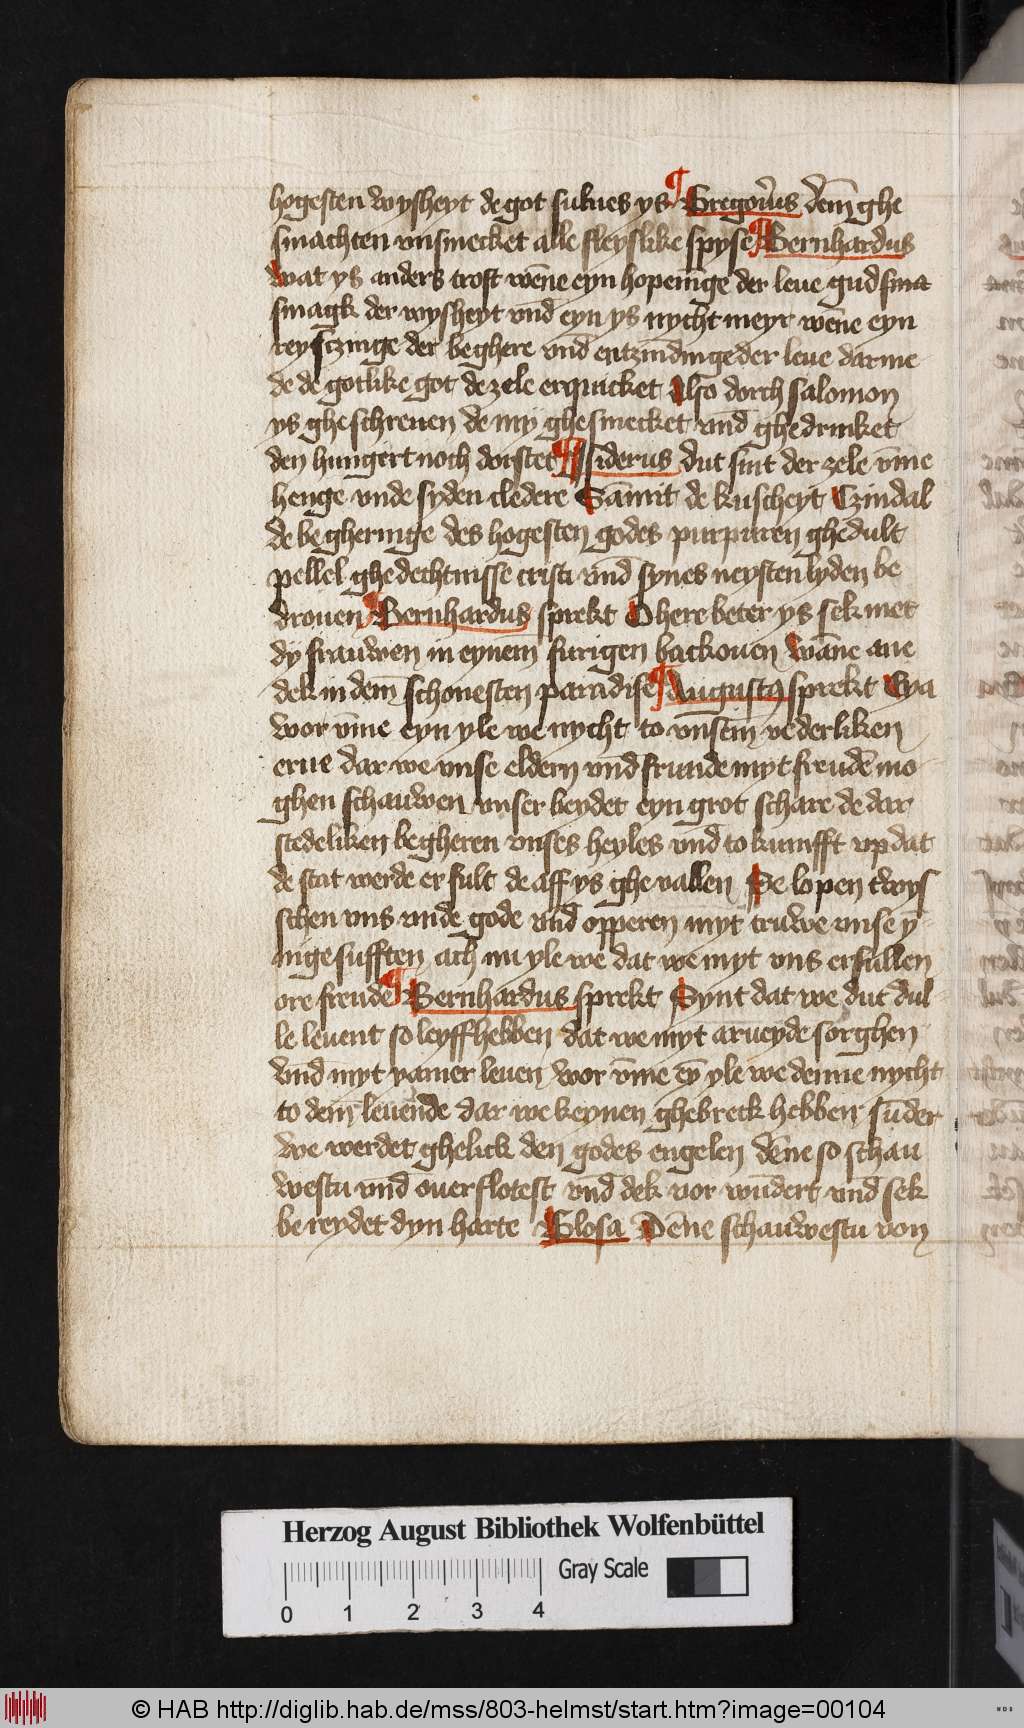 hogesten wysheyt de got sulues ys ¶ Gregori9us dem̄ ghe
smachten vnsmecket alle fleyslike spyse ¶ Bernhardus
wat ys anders trost wēne eyn hopenīge der leue gud sma
smagk der wysheyt vnd̄ eyn ys nycht meyr wēne eyn
reysczinge der beghere vnd̄ entzindinge der leue dar me
de de gotlike got de zele erquicket Also dorch salomon
ys gheschreuen de my ghesmecket vnd̄ ghedrinket
den hungert noch dorstet ¶ Isiderus dut sint der zele v̄me
henge vnde syden cledere Sam̄it de kuscheyt Czindal
de begheringe des hogesten godes purpuren ghedult
pellel ghedechtnisse cristi vnd̄ synes neysten lyden be
drouen ¶ Bernhardus sprekt O here beter ys sek met
dy frauwen in eynem̄ furigen backouen wāne ane
dek in dem̄ schonesten paradise ¶ Augustus sprekt Eya
wor v̄me eyn yle we nycht to vnsem̄ vederliken
erue dar we vnse eldern vnd̄ frunde myt freudē mo
ghen schauwen vnser beydet eyn grot schare de dar
stedeliken begheren vnses heyles vnd̄ to kumfft vp dat
de stat werde erfult de aff ys gheuallen Se lopen twys
schen vns vnde gode vnd̄ opperen myt truwe vnse y
nige sufften ach nu yle we dat we myt vns erfullen
ore freude ¶ Bernhardus sprekt Synt dat we dut dul
le leuent so leyff hebben dat we myt arueyde sorghen
vnd̄ myt yamer leuen wor v̄me eȳ yle we denne nycht
to dem̄ leuende dar we keynen ghebreck hebben sūder
we werdet ghelick den godes engelen dēne so schau
westu vnd̄ ouerflotest vnd̄ dek vorwūdert vnd̄ sek
bereydet dyn harte Glosa Dēne schauwestu von
Herzog August Bibliothek Wolfenbüttel
Gray Scale
0 1 2 3 4
© HAB http://diglib.hab.de/mss/803-helmst/start.htm?image=00104